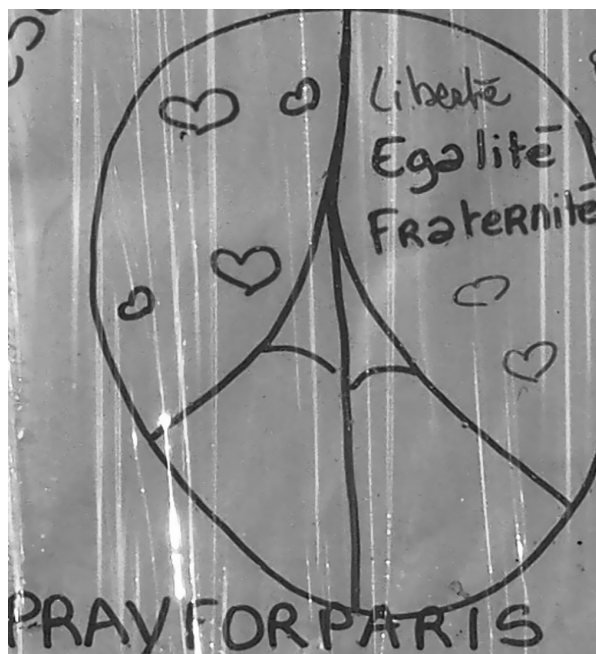 Liberté
Egalité
Fraternité
PRAY FOR PARIS